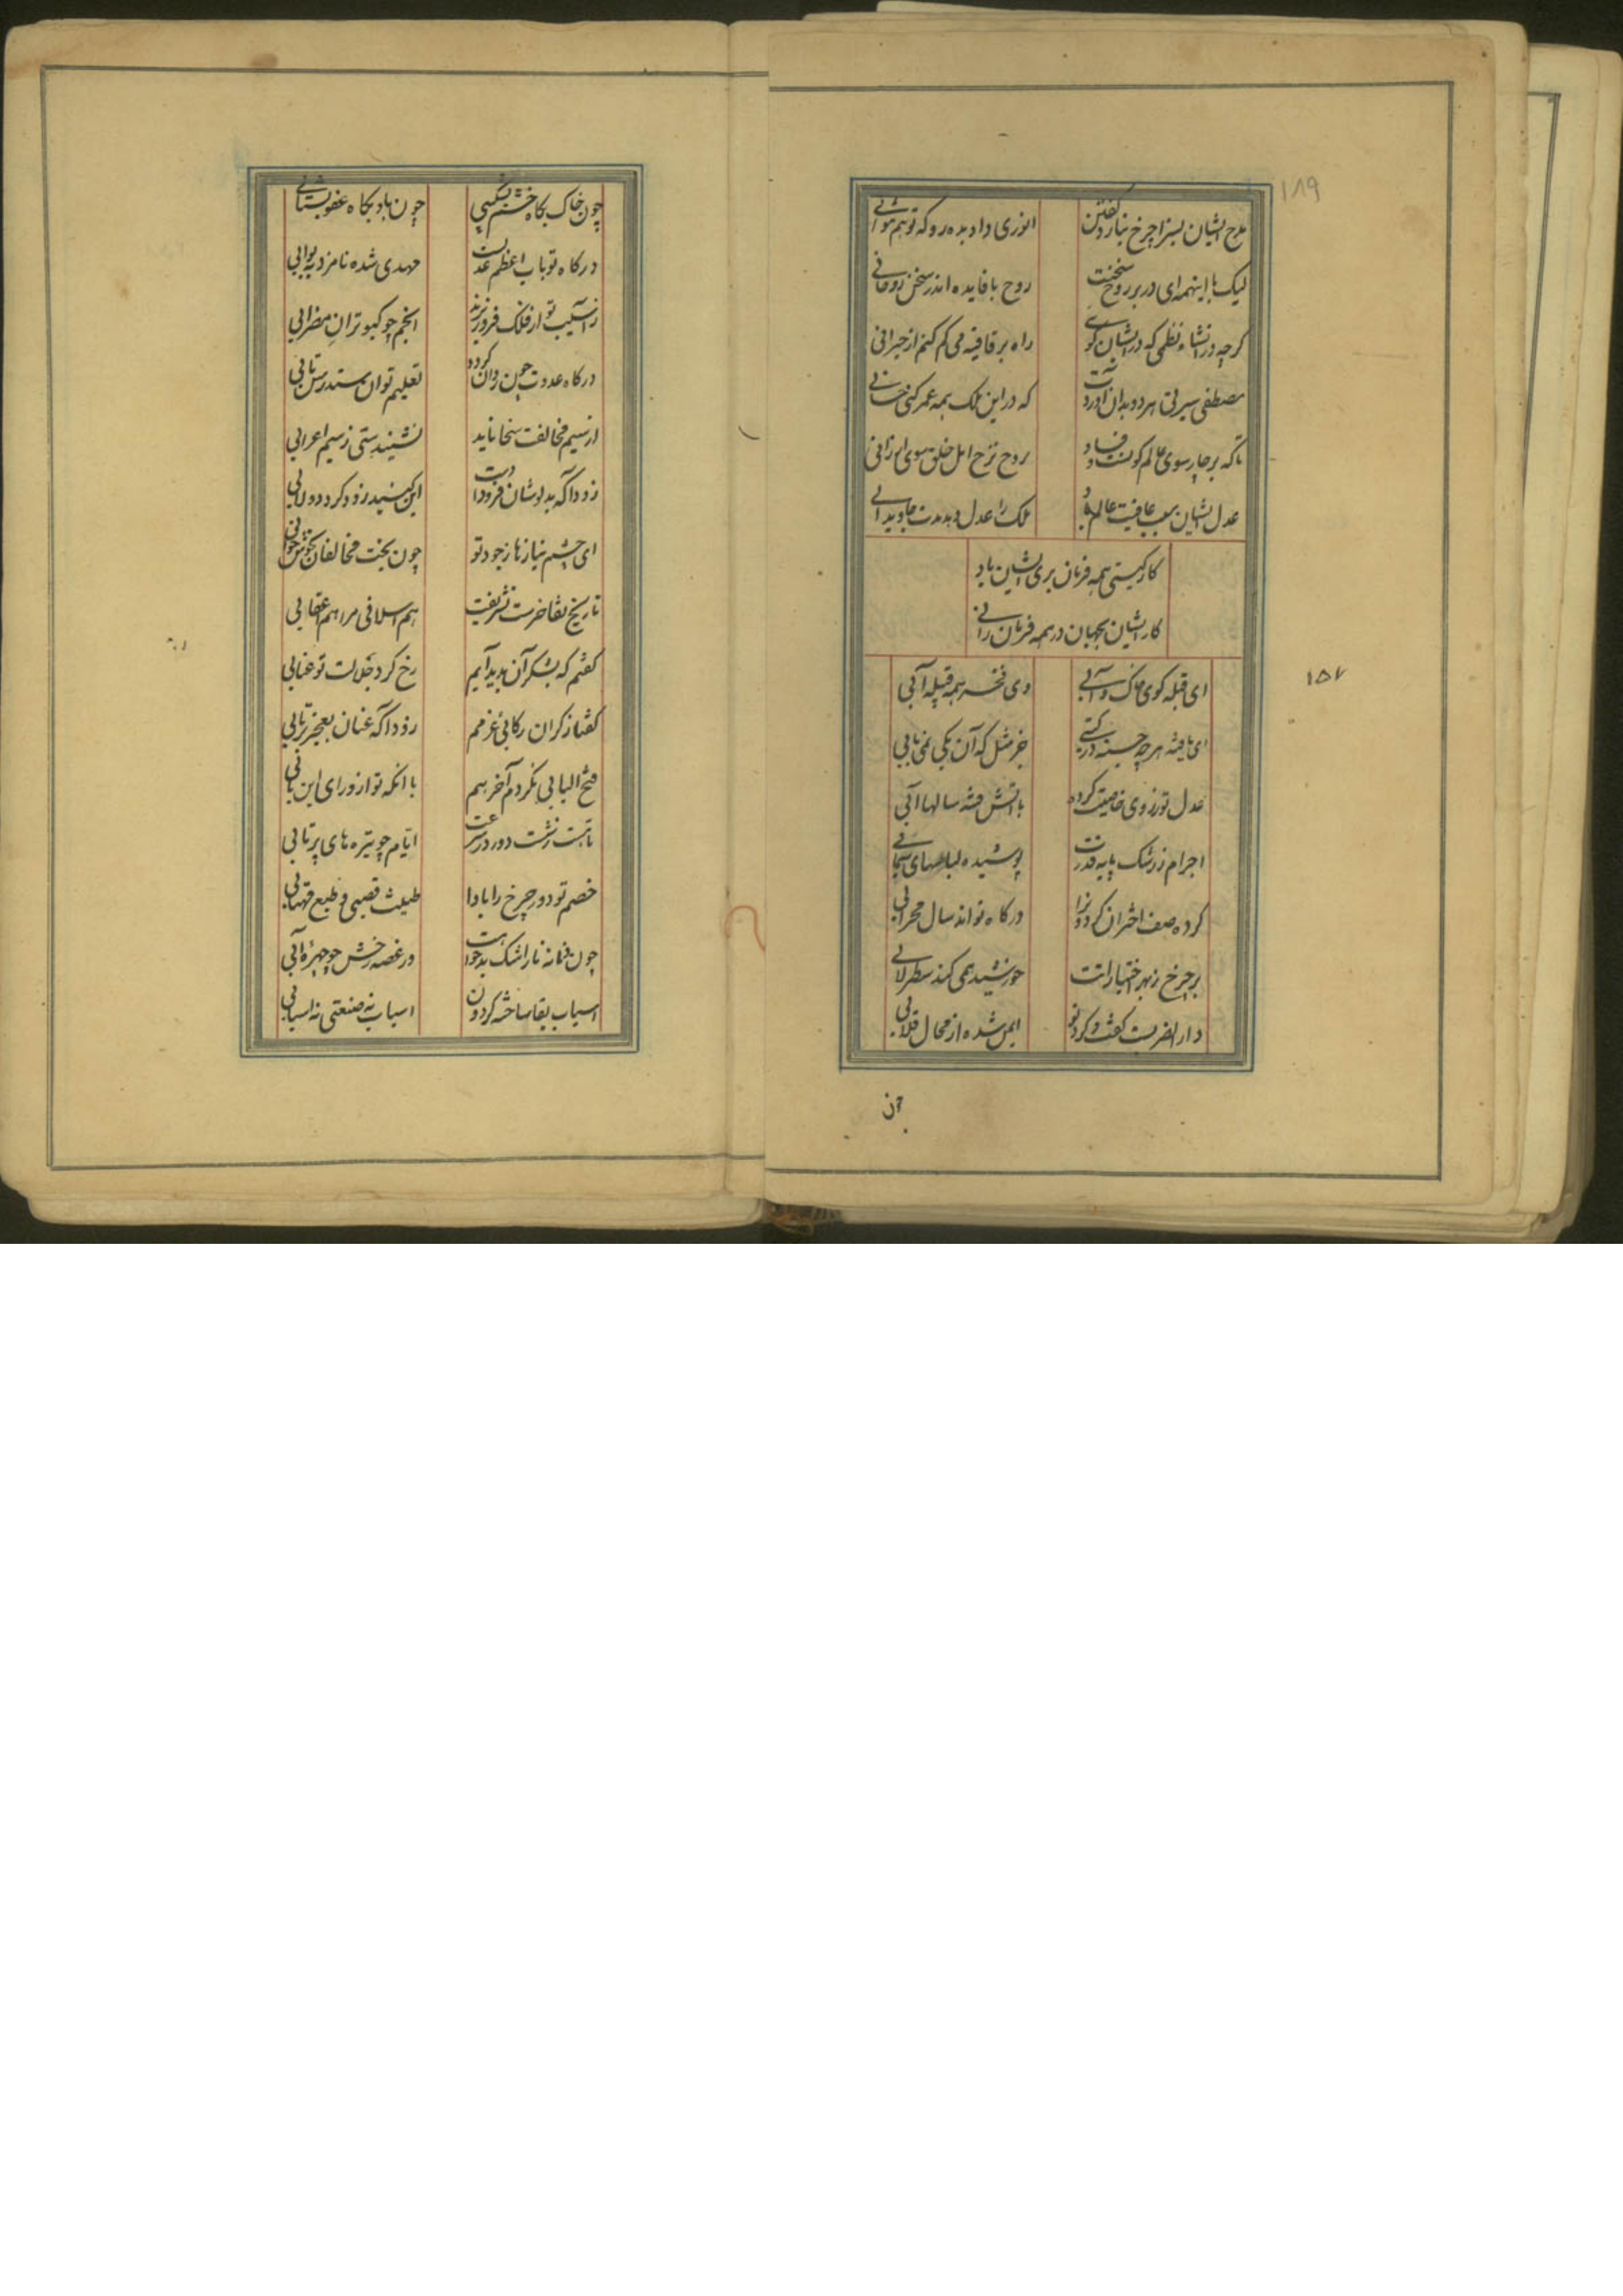 ۱۸۹
مدح ایشان بسزا چرخ نیارد گفتن انوری داد بده رو که تو هم نتوانی
لیک با اینهمه ای در بر روح سخنت روح با فایده اندر سخن روحانی
گرچه در انشاء نظمی که در ایشان گویی راه بر قافیه می گم کنم از حیرانی
مصطفی سیرتی هر دو بدان آوردت که در این ملک همه عمر کنی حسانی
تا که بر چار سوی عالم کون و فساد روح نرخ امل خلق سوی ارزانی
عدل ایشان سبب عافیت عالم باد ملک را عدل دهد مدت جاویدانی
کار گیتی همه فرمان بری ایشان باد
کار ایشان بجهان در همه فرمان رانی
۱۵۷
ای قبله کوی خاک و آبی وی فخر همه قبیله آبی
ای یافته هرچه جسته در گیتی جز مثل که آن یکی نمی یابی
عدل تو رزوی خاصیت کرده با آتش فتنه سالها آبی
اجرام ز رشک پایه قدرت پوشیده لباسهای سیمابی
کرده صف اختران گردونرا درگاه تو اند سال محرابی
بر چرخ ز بهر اختیارانت خورشید همی کند سطرلابی
دار الضربیست گفت و کرد تو ایمن شده از محال قلابی
چون
چون خاک بگاه خشم نشکیبی چون باد بگاه عفو بشتابی
درگاه تو باب اعظم عدلست مهدی شده نامزد به بوابی
ز آسیب تو از فلک فرو ریزند انجم چو کبوتران مضرابی
درگاه عدوت چون روان گردد تعلیم توان ستد رسن تابی
از سیم مخالفت سخا ناید نشنیدستی ز سیم اعرابی
زودا که بدوشان فرودادت این گنبد زود گرد دولابی
ای چشم نیازها ز جود تو چون بخت مخالفان بخوش خوابی
تاریخ تفاخرست تشریفت هم اسلافی مرا هم اعقابی
گفتم که بشکر آن پدید آیم رخ کرد خجلت تو عنابی
گفتا ز گران رکابی عزمم زودا که عنان بعجز برتابی
فتح البابی بکردم آخر هم با آنکه تو از ورای این بابی
تا هست نشست دور در سرعت ایام چو تیره های پرتابی
خصم تو و دور چرخ را بادا طبیعت قصبی و طبع مهتابی
چون دانه نار اشک بدخواهت در غصه رخش چو چهره آبی
اسباب بقا ساخته گردون اسباب نه صنعتی نه اسبابی